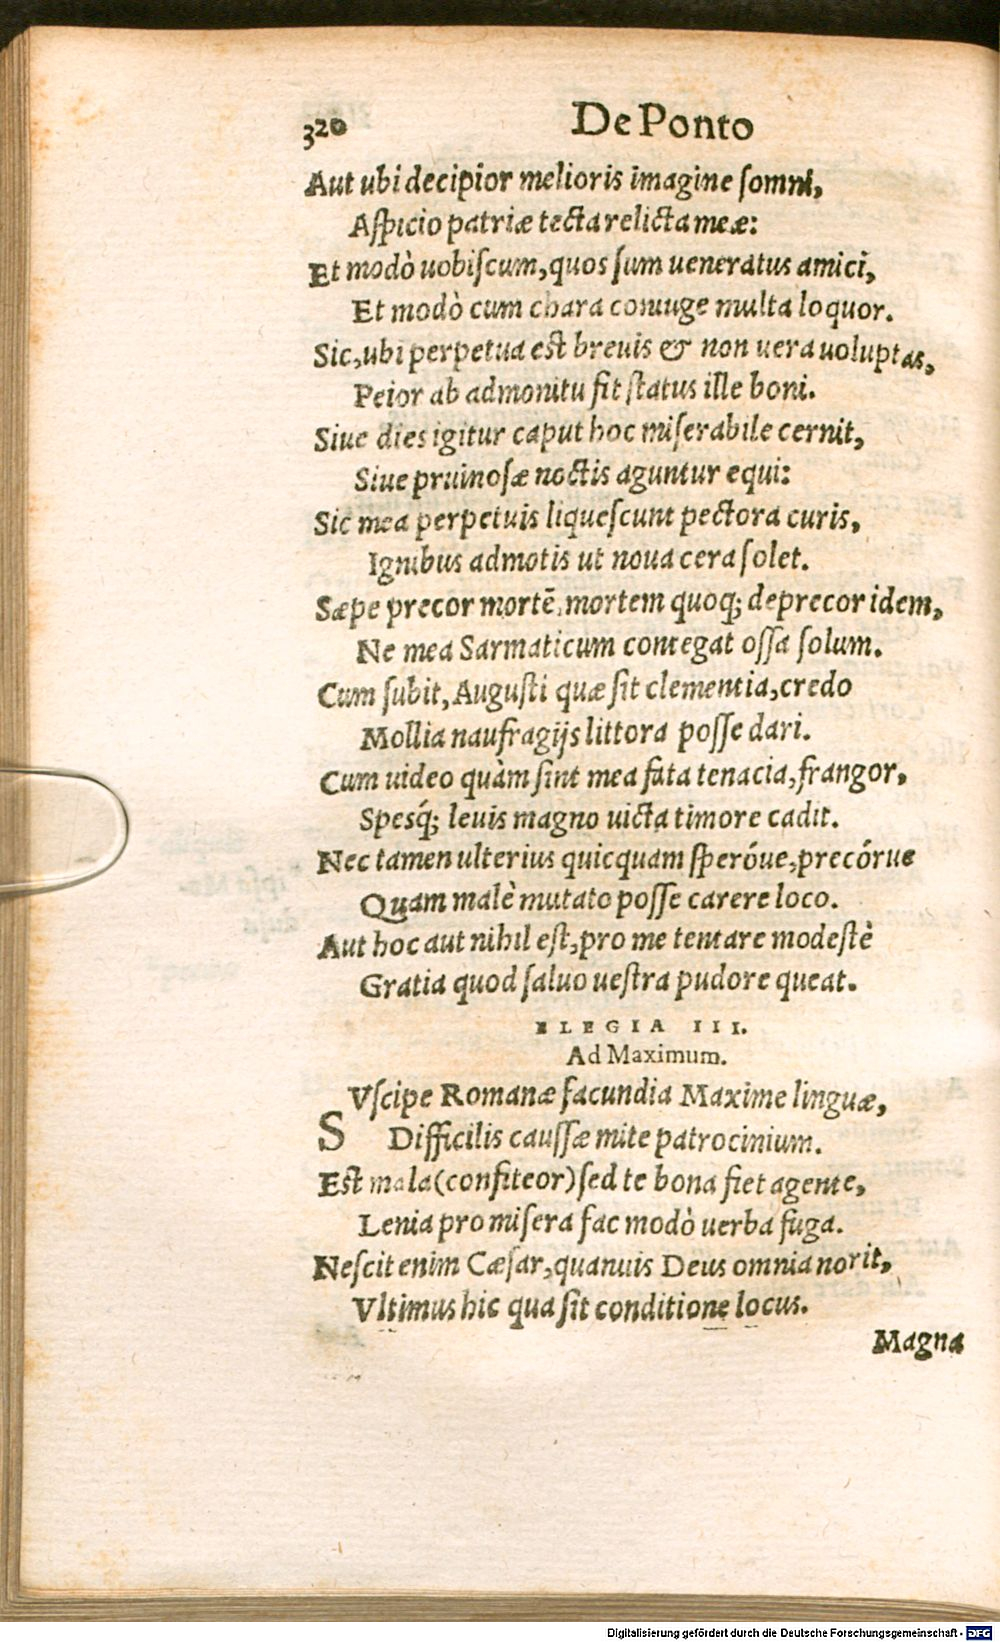 320 De Ponto
Aut ubi decipior melioris imagine ſomni,
Aſpicio patriæ tecta relicta meæ:
Et modò uobiſcum, quos ſum ueneratus amici,
Et modò cum chara coniuge multa loquor.
Sic, ubi perpetua est breuis & non uera uoluptas,
Peior ab admonitu fit ſtatus ille boni.
Siue dies igitur caput hoc miſerabile cernit,
Siue pruinoſæ noctis aguntur equi:
Sic mea perpetuis liqueſcunt pectora curis,
Ignibus admotis ut noua cera ſolet.
Sæpe precor mortẽ, mortem quoq; deprecor idem,
Ne mea Sarmaticum contegat oſſa ſolum.
Cum ſubit, Auguſti quæ ſit clementia, credo
Mollia naufragijs littora poſſe dari.
Cum uideo quàm ſint mea fata tenacia, frangor,
Spesq́; leuis magno uicta timore cadit.
Nec tamen ulterius quicquam ſperóue, precórue
Quam malè mutato poſſe carere loco.
Aut hoc aut nihil eſt, pro me tentare modeſtè
Gratia quod ſaluo ueſtra pudore queat.
ELEGIA III.
Ad Maximum.
SVſcipe Romanæ facundia Maxime linguæ,
Difficilis cauſſæ mite patrocinium.
Est mala (confiteor) ſed te bona fiet agente,
Lenia pro miſera fac modò uerba fuga.
Neſcit enim Cæſar, quanuis Deus omnia norit,
Vltimus hic qua ſit conditione locus.
Magna
Digitalisierung gefördert durch die Deutsche Forschungsgemeinschaft - DFG